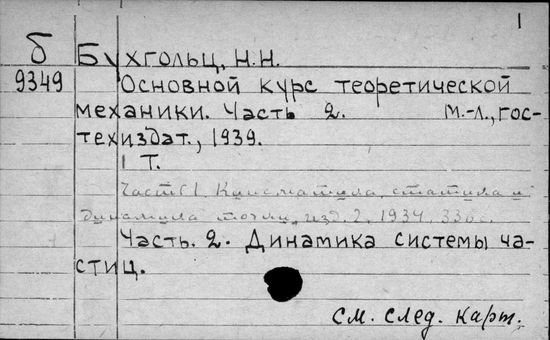 1
б Бухгольц, Н.Н.
9349 Основной курс теоретической
механики. Часть 2. М.-Л., Гос-
техиздат., 1939.
1 Т.
Часть 1. Кинематика, статика и
динамика точки, изд. 2, 1934, 336 с.
Часть. 2. Динамика системы ча-
стиц.
См. след. карт.